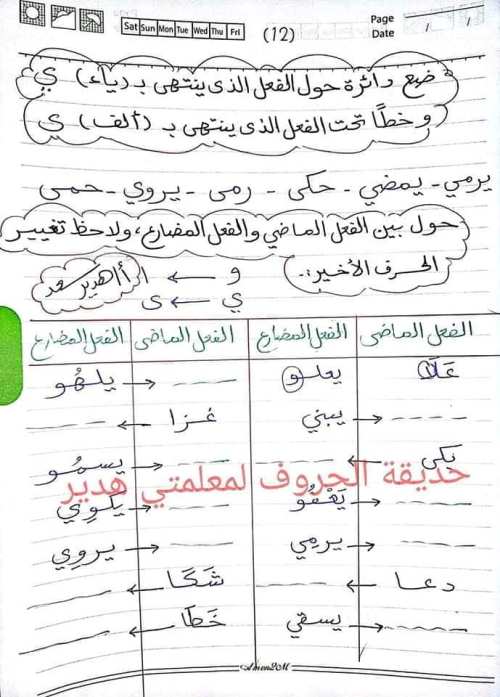 Sat Sun Mon Tue Wed Thu Fri
(12)
Page
Date / /
ضع دائرة حول الفعل الذى ينتهى بـ (ياء) ي
وخطًا تحت الفعل الذى ينتهى بـ (ألف) ى
يرمي - يمضي - حكى - رمى - يروي - حمى
حول بين الفعل الماضي والفعل المضارع، ولاحظ تغيير
الحرف الأخير:.
و ← ا
ي ← ى
أ/هدير سعد
الفعل الماضى الفعل المضارع الفعل الماضى الفعل المضارع
عَلَا يعلو ---- → يلهُو
---- → يبني غزا ← ----
بكى ← ---- ---- → يسمُو
---- → يَعْفُو ---- → يكْوِي
---- → يرمِي ---- → يروِي
دعا ← ---- شَكَا ← ----
---- → يسقي خَطَا ← ----
حديقة الحروف لمعلمتي هدير